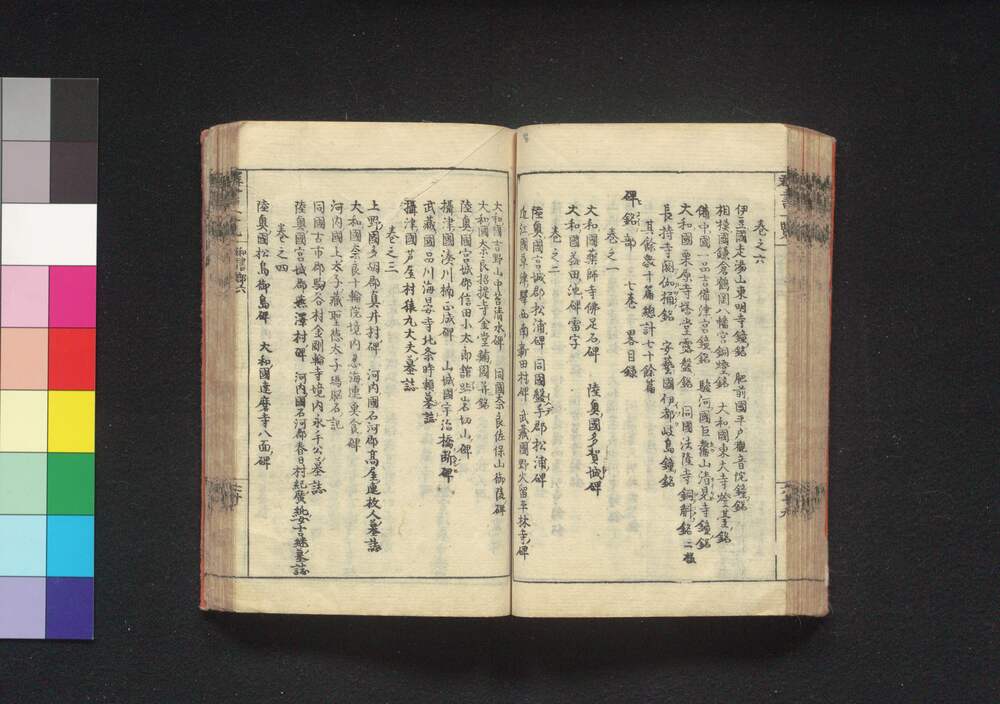 卷之六
伊豆國走湯山東明寺鐘銘　肥前國平戶觀音院鐘銘
相模國鎌倉鶴岡八幡宮銅燈銘　大和國東大寺燈臺銘
備中國一品吉備津宮鐘銘　駿河國巨鼇山清見寺鐘銘
大和國栗原寺塔堂露盤銘　同國法隆寺銅斛銘二種
長持寺閼伽桶銘　安藝國伊都岐島鐘銘
其餘衆十篇總計七十餘篇
碑銘部　七卷　畧目錄
卷之一
大和國藥師寺佛足石碑　陸奧國多賀城碑
大和國益田池碑雷字
卷之二
陸奧國宮城郡松浦碑　同國駿手郡松浦碑
近江國草津驛西南新田村碑　武藏國野火留平林寺碑
大和國吉野山中苔清水碑　同國奈良佐保山御陵碑
大和國奈良招提寺金堂銘
陸奧國宮城郡信田小太郎館岩切山碑
攝津國湊川楠正成碑　山城國宇治橋斷碑
武藏國品川海晏寺北条時賴墓誌
攝津國芦屋村猿丸大夫墓誌
卷之三
上野國多胡郡真井村碑　河內國石河郡高屋連枚人墓誌
大和國奈良十輪院境內魚食碑
河內國上太子藏聖德太子瑪瑙石記
同國古市郡駒谷村金剛輪寺境內永手公墓誌
陸奧國宮城郡燕澤村碑　河內國石河郡春日村紀廣純女吉繼墓誌
卷之四
陸奧國松島御島碑　大和國達磨寺八面碑